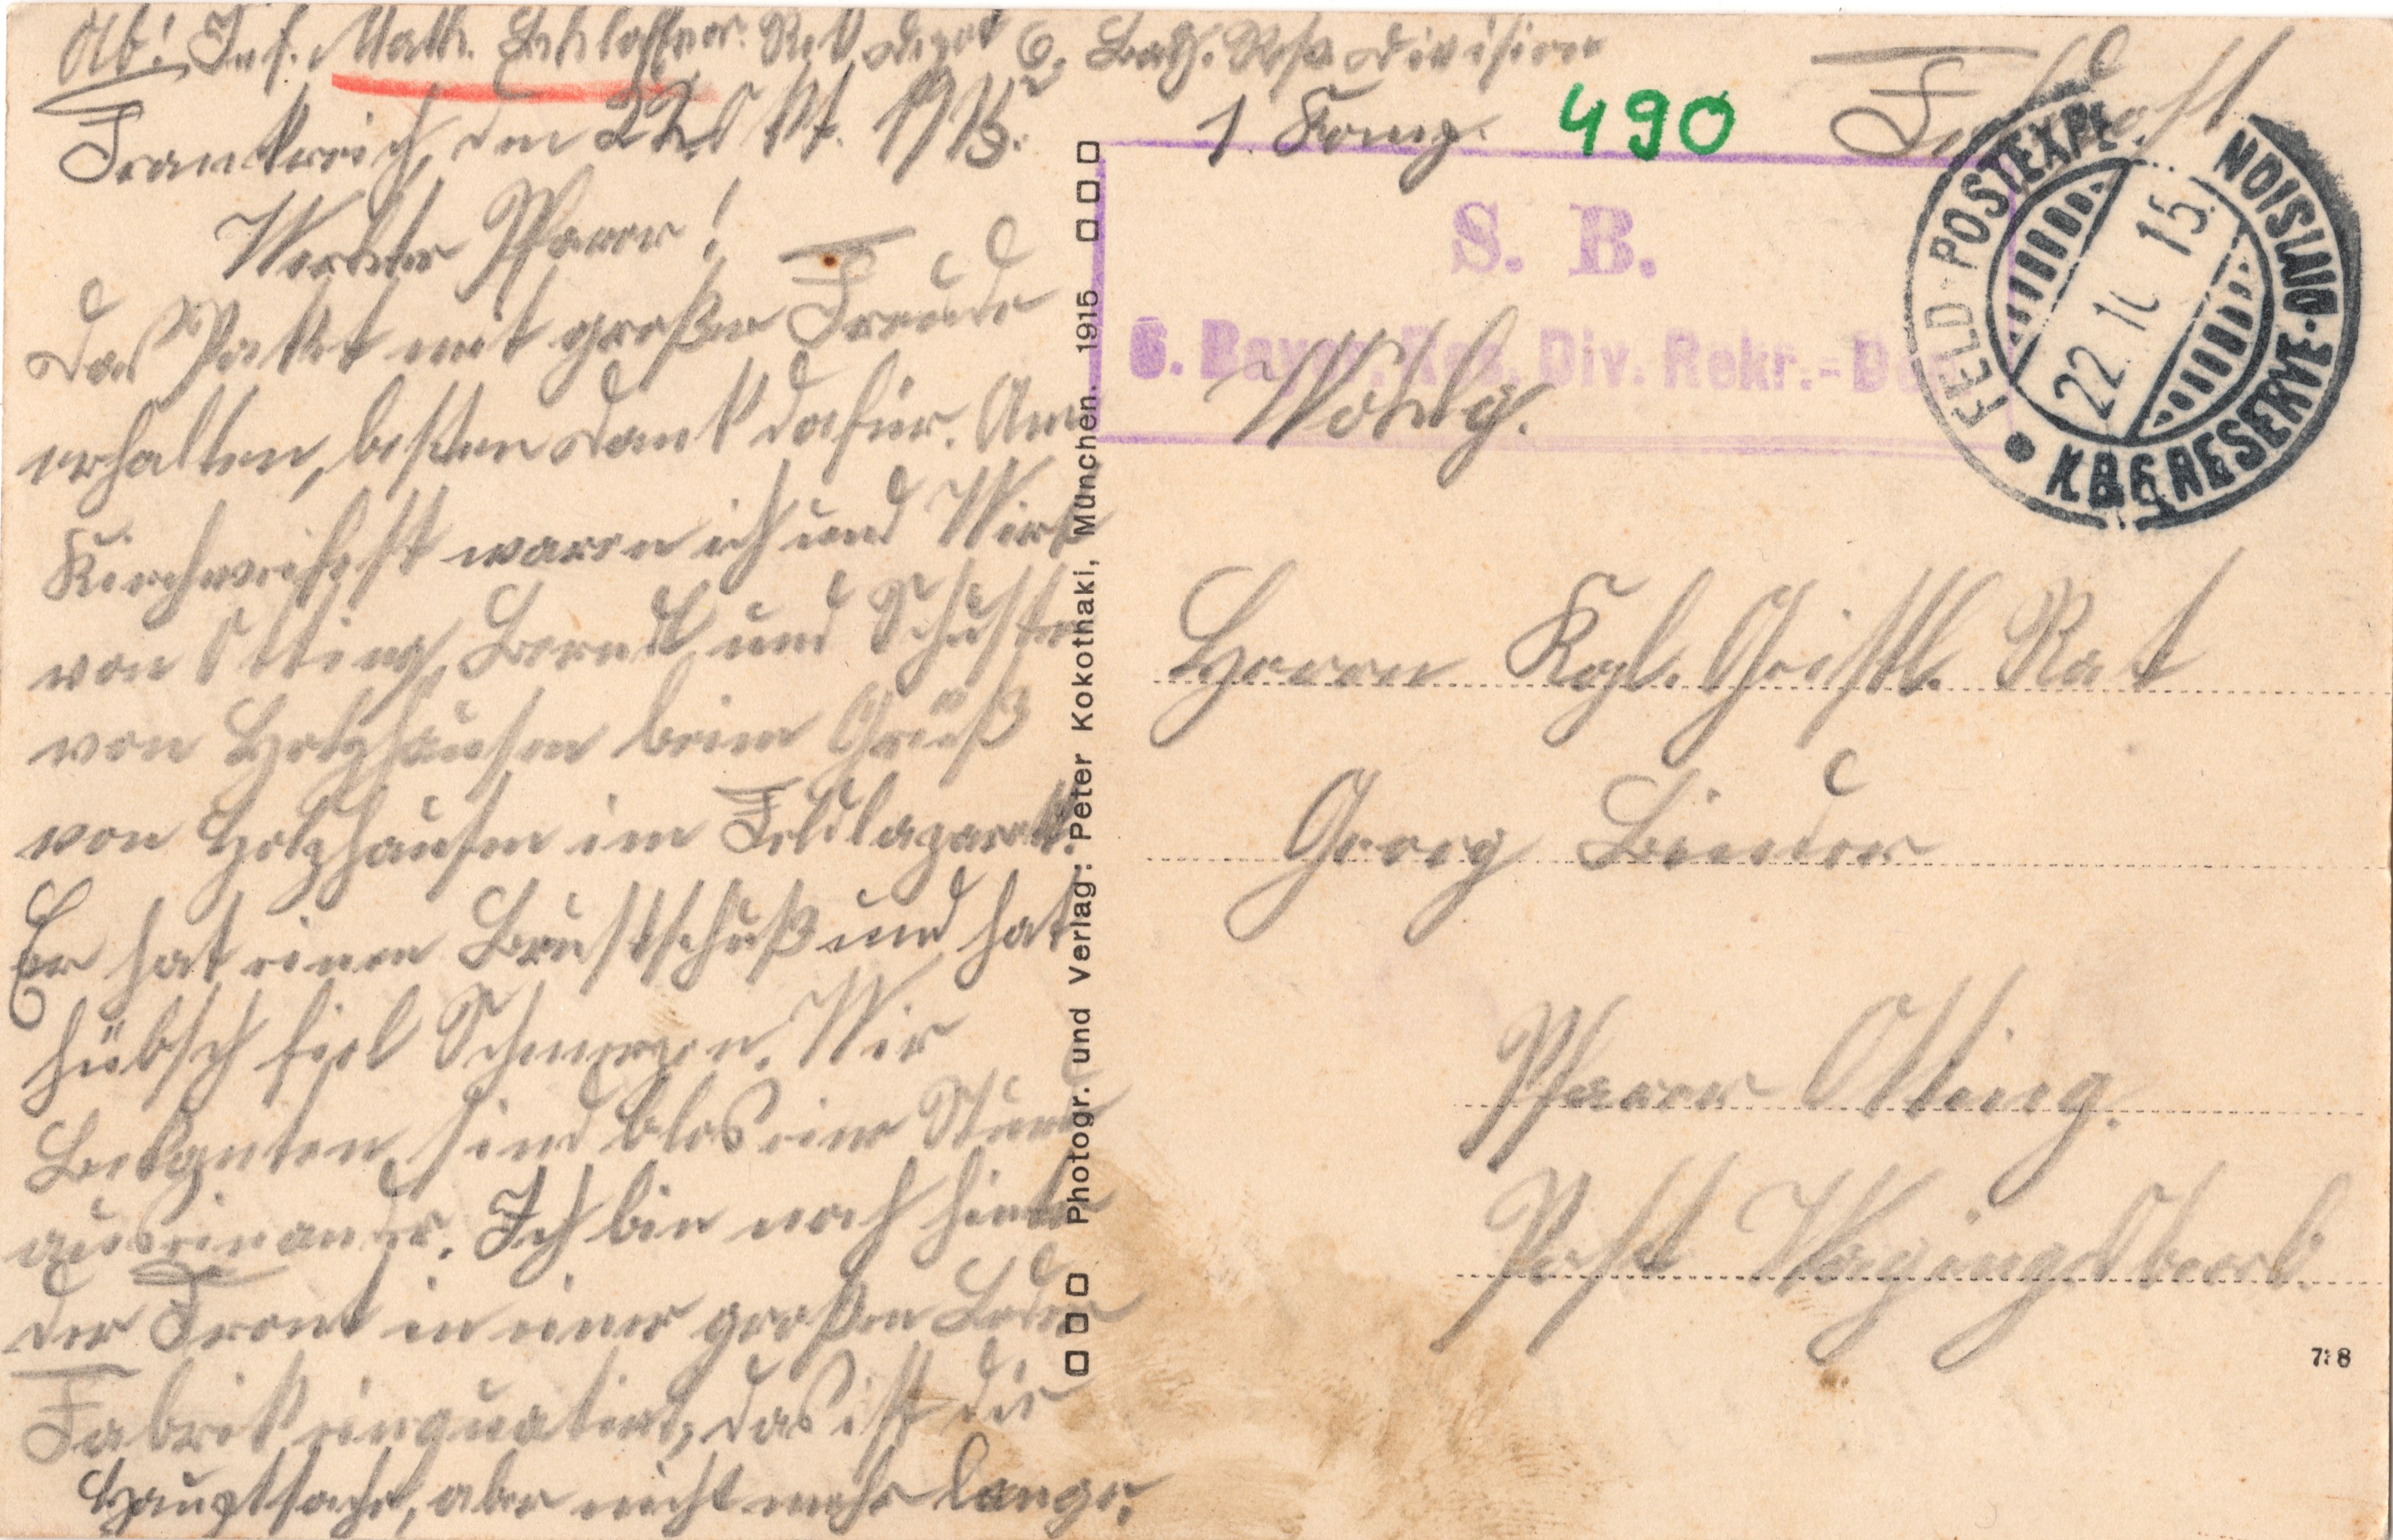 Ab! Inf. Math. Schlosser. Rekr. Depot 6. bay. Res. Division
1. Komp. 490 Feldpost
Frankreich, den 22. Okt. 1915.
Werther Pfarrer!
Das Paket mit großer Freude
erhalten, besten Dank dafür. Am
Kirchweihfest waren ich und Wirt
von Otting, Berndl und Schuster
von Holzhausen beim Grieß
von Holzhausen im Feldlazarett.
Er hat einen Brustschuß und hat
hübsch fiel Schmerzen. Wir
Bekanten sind blos eine Stund
auseinander. Ich bin noch hinter
der Front in einer großen Leder
Fabrik einquatirt, das ist die
Hauptsache, aber nicht mehr lange.
Photogr. und Verlag: Peter Kokothaki, München. 1915
S. B.
6. Bayer. Res. Div. Rekr.-Dep
FELD-POSTEXP.
K.B.6 RESERVE-DIVISION
22. 10. 15.
Herrn Kgl. Geistl. Rat
Georg Binder
Pfarrer Otting.
Post Waging Oberb.
738